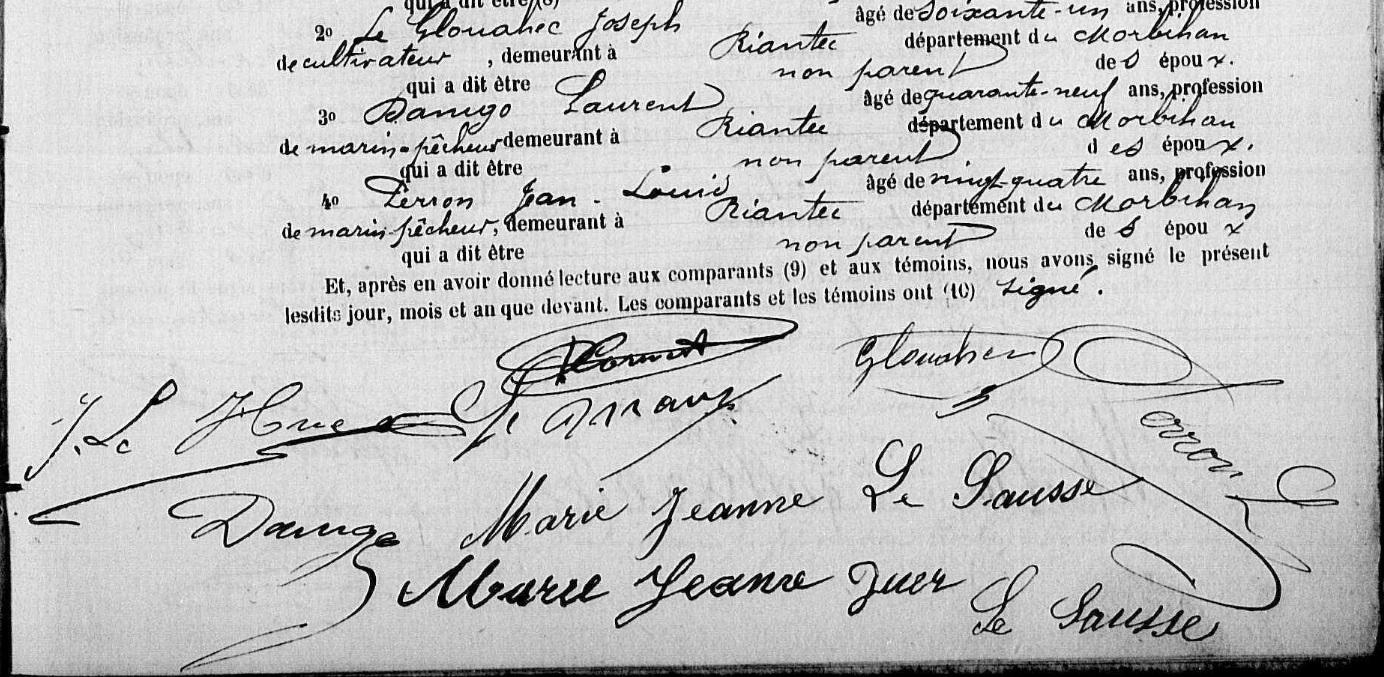 qui a dit être
2º Le Glouahec Joseph âgé de soixante-un ans, profession
de cultivateur, demeurant à Riantec département du Morbihan
qui a dit être non parent des époux.
3º Dango Laurent âgé de quarante-neuf ans, profession
de marin-pêcheur demeurant à Riantec département du Morbihan
qui a dit être non parent des époux.
4º Perron Jean-Louis âgé de vingt-quatre ans, profession
de marin-pêcheur, demeurant à Riantec département du Morbihan
qui a dit être non parent des époux
Et, après en avoir donné lecture aux comparants (9) et aux témoins, nous avons signé le présent
lesdits jour, mois et an que devant. Les comparants et les témoins ont (10) signé.
Glouahec
J. Le
Perron
Dango
Marie Jeanne Le Sausse
Marie Jeanne
Le Sausse